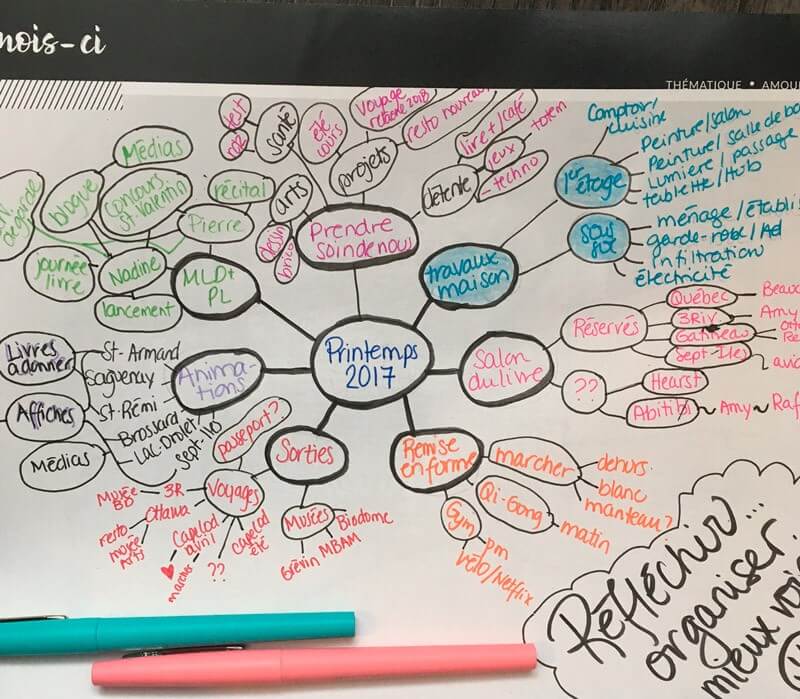 mois-ci
THÉMATIQUE • AMOU
Printemps
2017
Prendre
soin de nous
santé
test
été
cours
projets
voyage
octobre 2018
resto nouveau
détente
lire + / café
jeux
totem
techno
arts
dessin
brico
travaux
maison
1er
étage
Comptoir/
cuisine
Peinture/salon
Peinture/salle de ba
Lumière / passage
tablette / Hub
sous
sol
ménage / Établi
garde-robe / Ad
Infiltration
électricité
Salon
du livre
Réservés
Québec
Beauc
3Riv.
Amy
Gatineau
Sept-Îles
avio
??
Hearst
Abitibi
Amy ~ Raf
Remise
en forme
marcher
dehors.
blanc
manteau?
Qi-Gong
matin
Gym
pm
vélo/Netflix
Sorties
Musées
Biodome
MBAM
Grévin
Voyages
passeport?
3R
Musée
BD
Ottawa
Cape Cod
avril
marcher
??
Cape Cod
été
Anima-
tions
St-Armand
Saguenay
St-Rémi
Brossard
Lac-Drolet
Sept-Îles
Livres
à donner
Affiches
Médias
MLD+
PL
Pierre
récital
Nadine
Concours
St-Valentin
blogue
Médias
journée
livre
lancement
Réfléchir...
organiser...
mieux voi